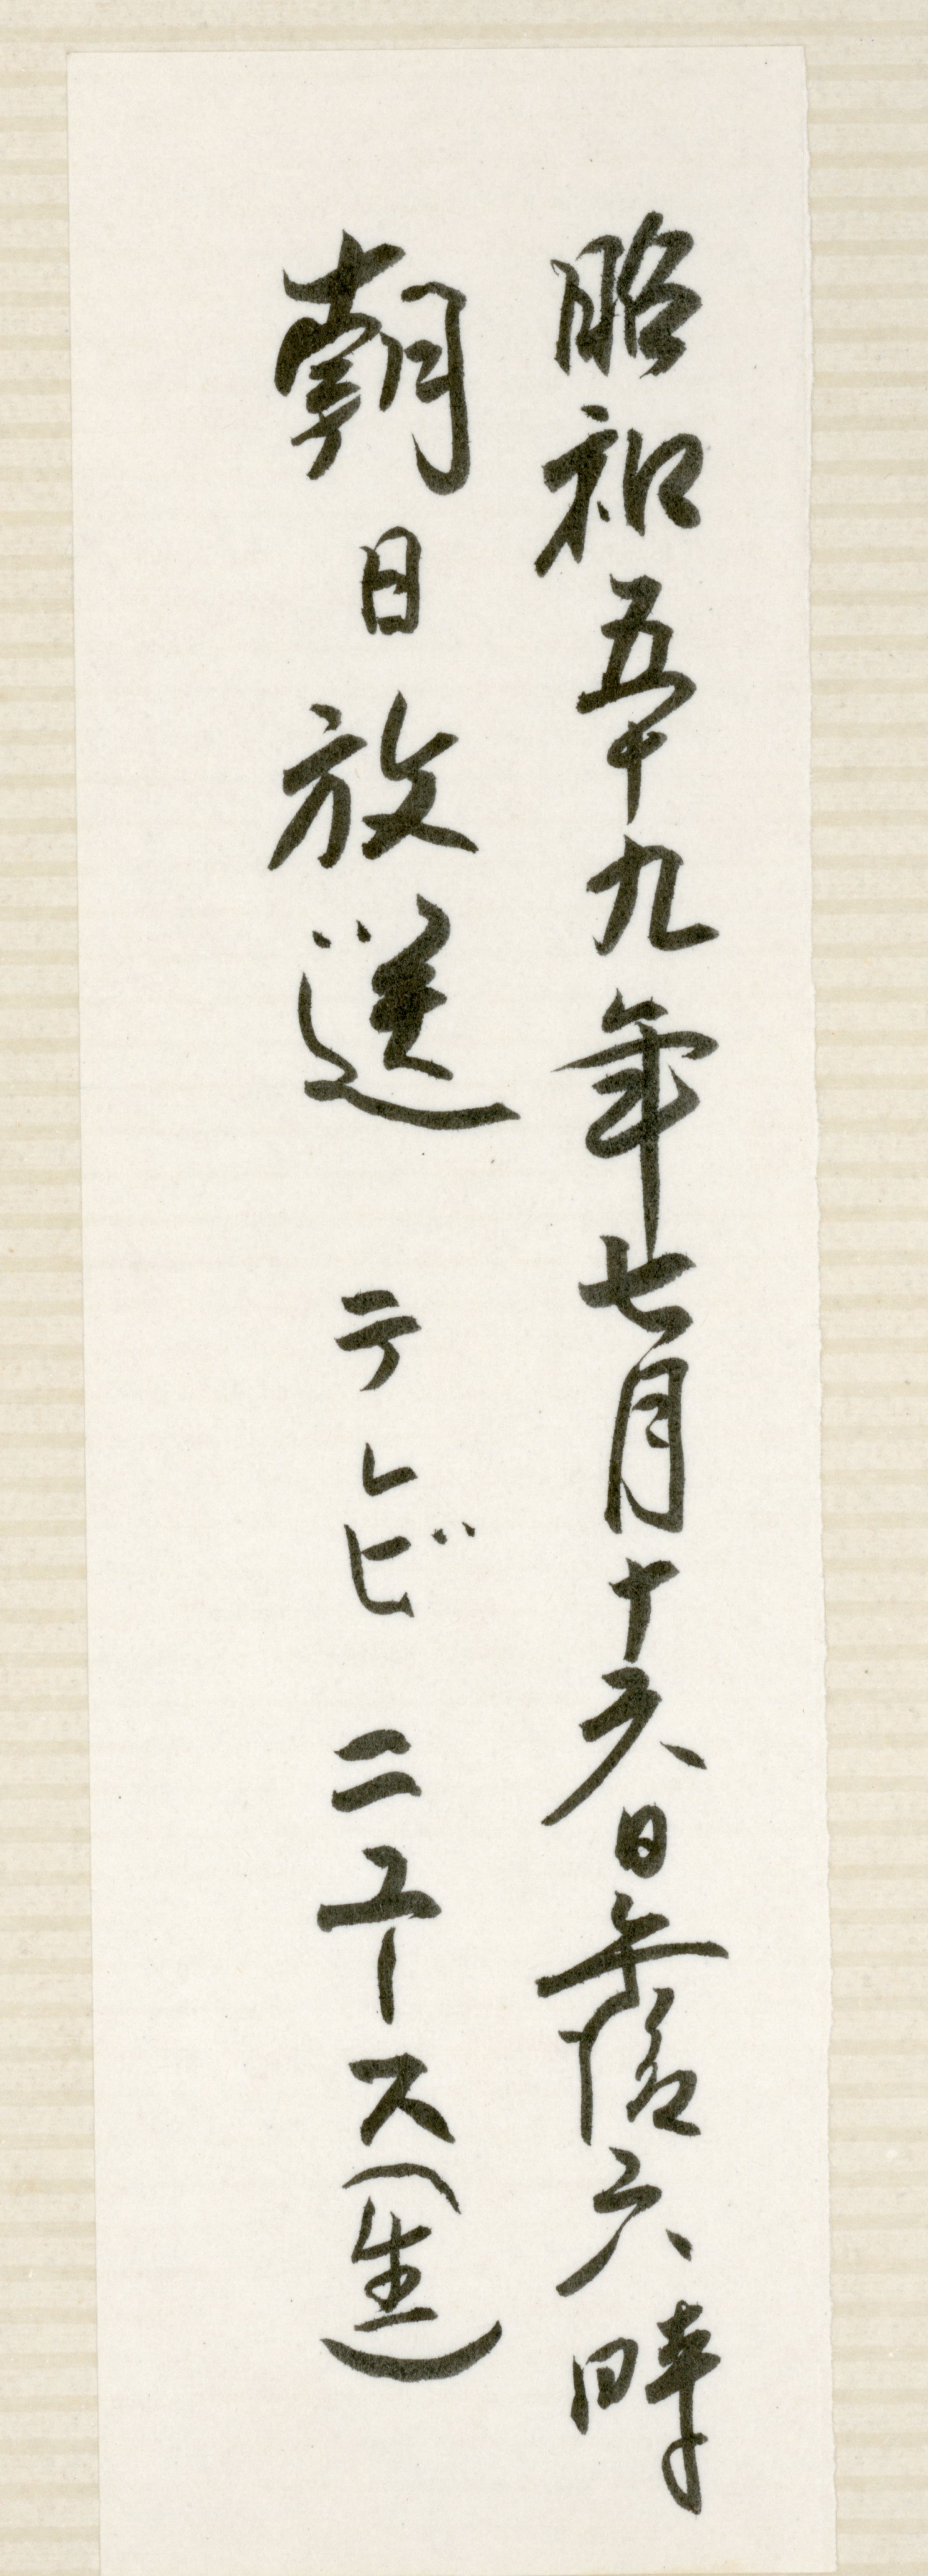 昭和五十九年七月十六日午後六時
朝日放送 テレビ ニュース(生)